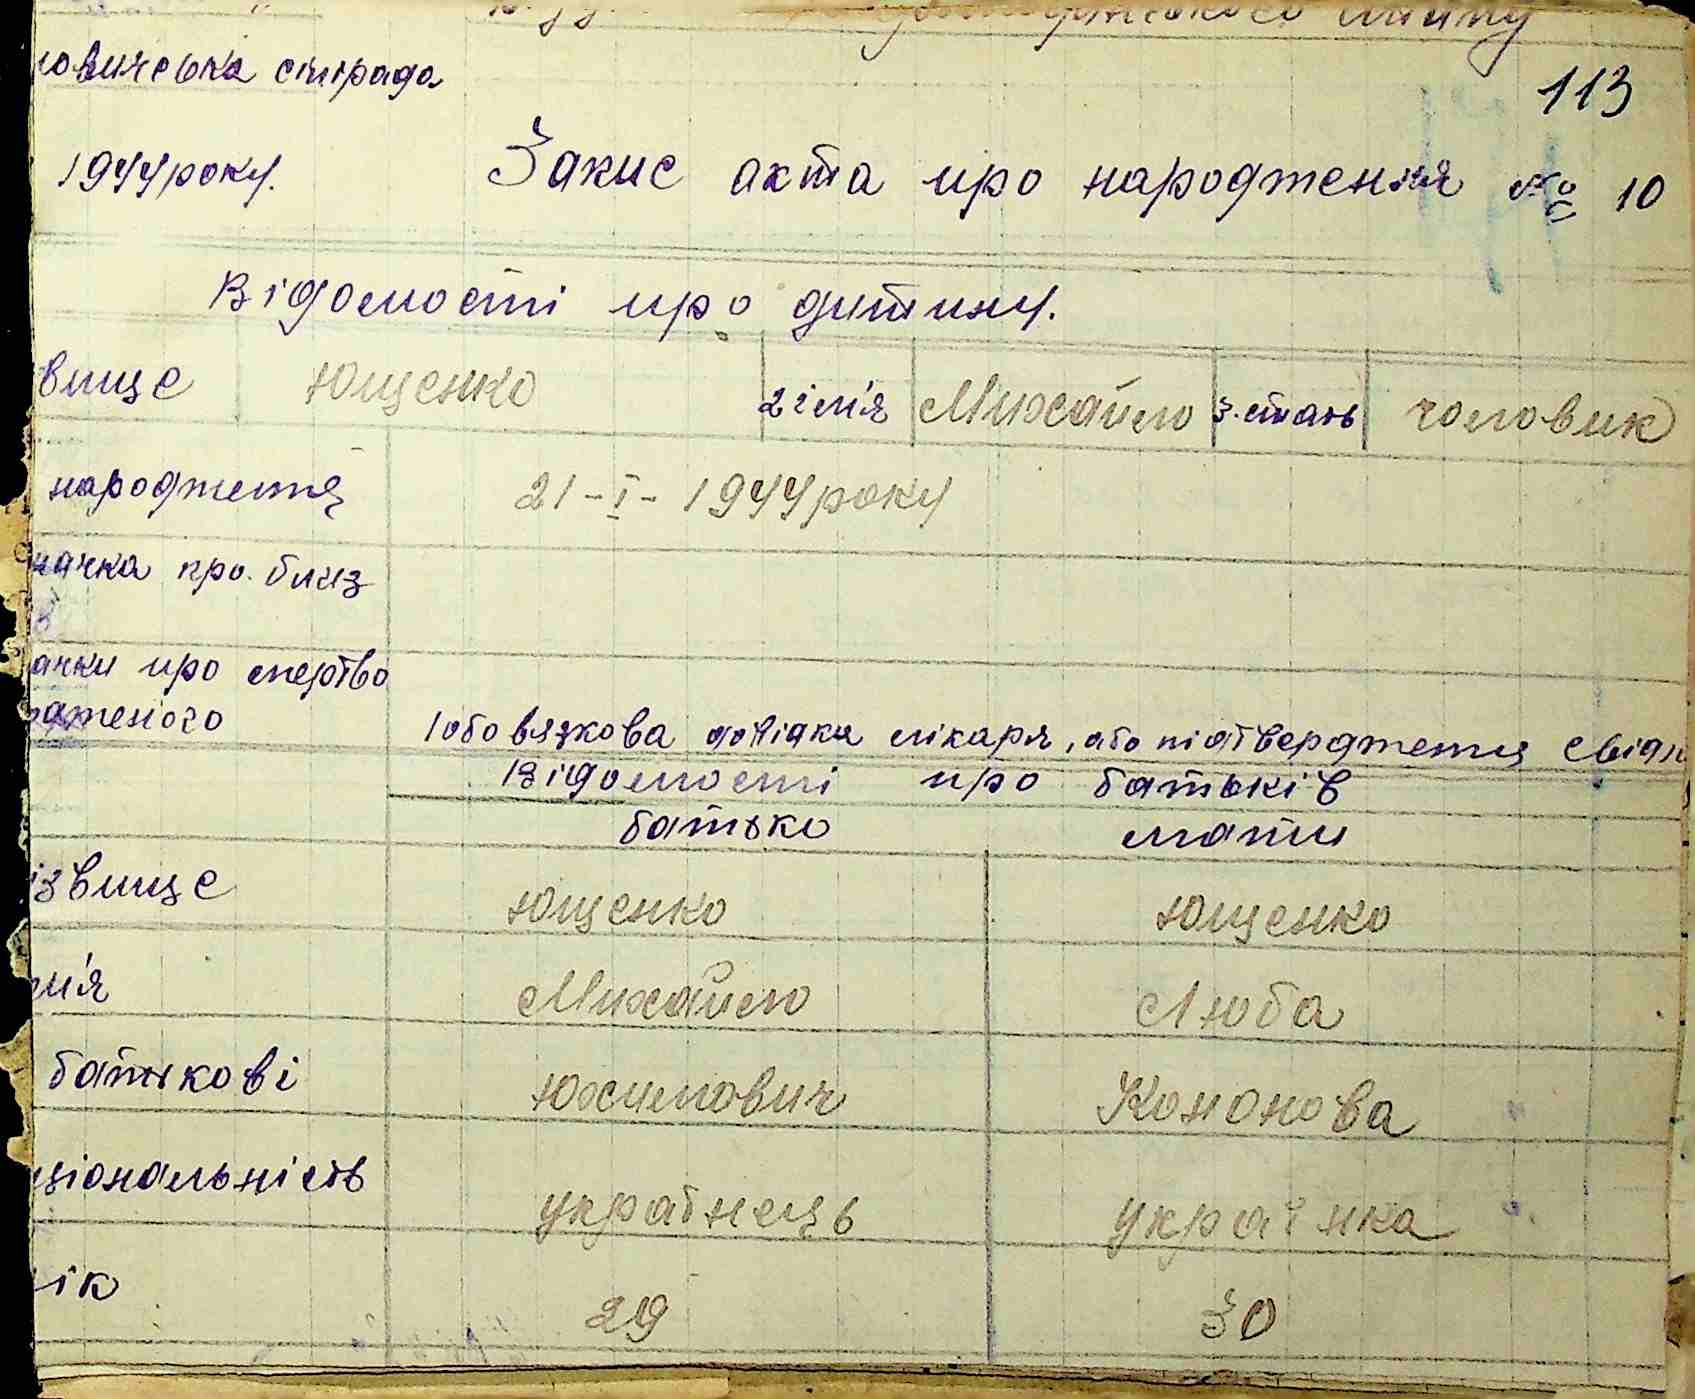 овичська сільрада
113
1944 року.
Запис акта про народження № 10
Відомості про дитину.
вище Ющенко 2 ім'я Михайло 3. стать чоловик
народження 21-I-1944 року
начка про близ
в
ачки про мертво
дженого
(обовязкова довідка лікаря, або підтвердження свідк
Відомості про батьків
батько мати
ізвище Ющенко Ющенко
м'я Михайло Люба
батькові Юхимович Кононова
ціональність українець українка
ік 29 30